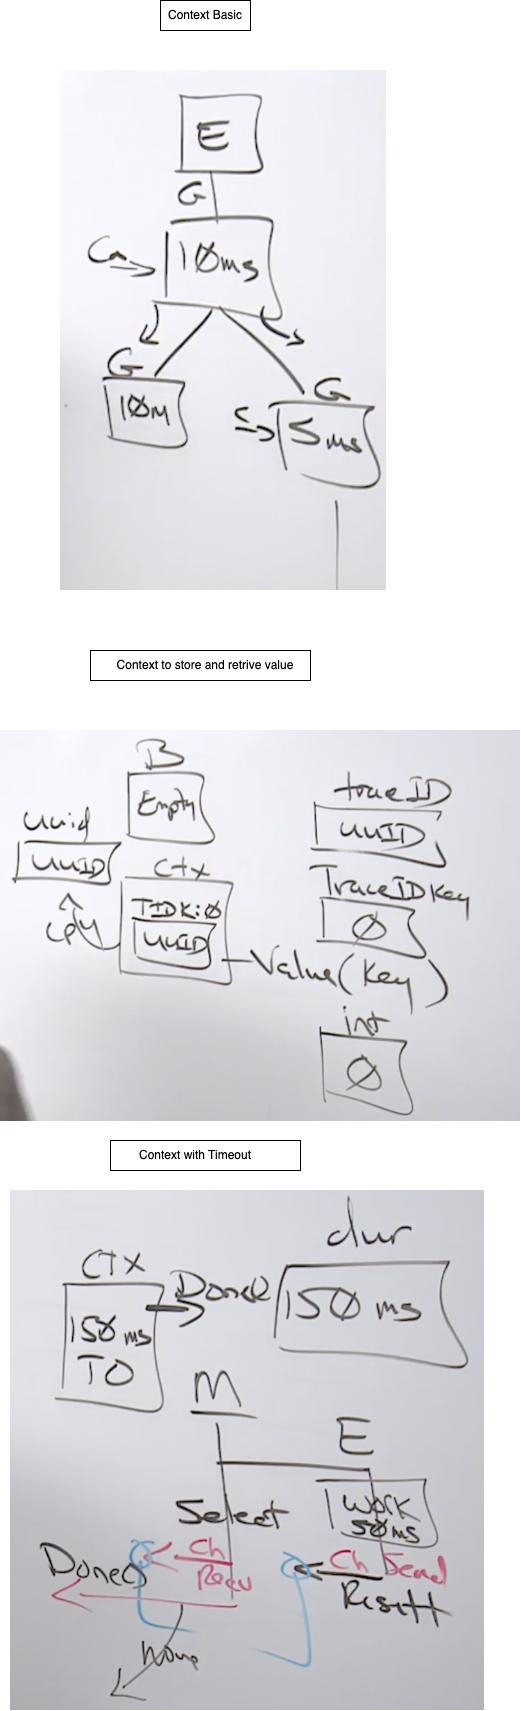 Context Basic
E
G
10ms
G
10M
G
5ms
Context to store and retrive value
B
Empty
uuid
UUID
Ctx
TIDK:0
UUID
cpy
Value(Key)
traceID
UUID
TraceIDKey
0
int
0
Context with Timeout
CTX
150 ms
TO
Done
dur
150 ms
M
E
Work
50ms
Select
Ch
Recv
Done
Ch Send